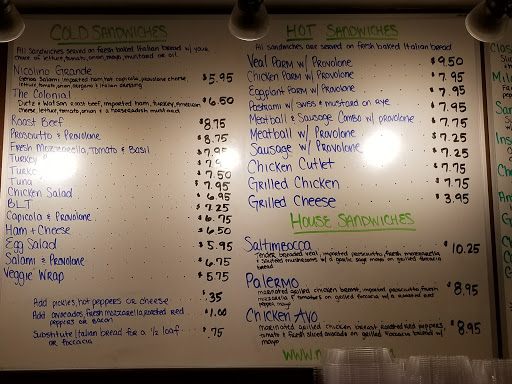 COLD SANDWICHES
All sandwiches served on fresh baked Italian bread w/ your
choice of lettuce, tomato, onion, mayo, mustard or oil.
Nicolino Grande
Genoa Salami, imported ham, hot capicola, provolone cheese, $5.95
lettuce, tomato, onion,
The Colonial
Dietz & Watson roast beef, imported ham, turkey, American $6.50
cheese, lettuce, tomato, onion & a horseradish mustard
Roast Beef $8.75
Prosciutto & Provolone $8.75
Fresh Mozzarella, Tomato & Basil $7.95
Turkey
Turkey 7.50
Tuna $7.95
Chicken Salad $6.95
BLT $7.25
Capicola & Provolone $6.75
Ham & Cheese $6.50
Egg Salad $5.95
Salami & Provolone $6.75
Veggie Wrap $5.75
Add pickles, hot peppers or cheese .35
Add avocados, fresh mozzarella, roasted red $1.00
peppers or bacon
Substitute Italian bread for a 1/2 loaf .75
or foccacia
HOT SANDWICHES
All sandwiches are served on fresh baked Italian bread
Veal Parm w/ Provolone $9.50
Chicken Parm w/ Provolone $7.95
Eggplant Parm w/ Provolone $7.95
Pastrami w/ Swiss & mustard on rye $7.95
Meatball & Sausage Combo w/ provolone $7.75
Meatball w/ Provolone $7.25
Sausage w/ Provolone $7.25
Chicken Cutlet $7.75
Grilled Chicken $7.75
Grilled Cheese $3.95
HOUSE SANDWICHES
Saltimbocca $10.25
Tender breaded veal, imported prosciutto, fresh mozzarella
& sauteed mushrooms w/ a garlic sage mayo on grilled foccacia
bread
Palermo $8.95
marinated grilled chicken breast, imported prosciutto, fresh
mozzarella & tomatoes on grilled foccacia w/ a roasted red
pepper mayo
Chicken Avo $8.95
marinated grilled chicken breast, roasted red peppers,
tomato & fresh sliced avocado on grilled foccacia w/
mayo
www.